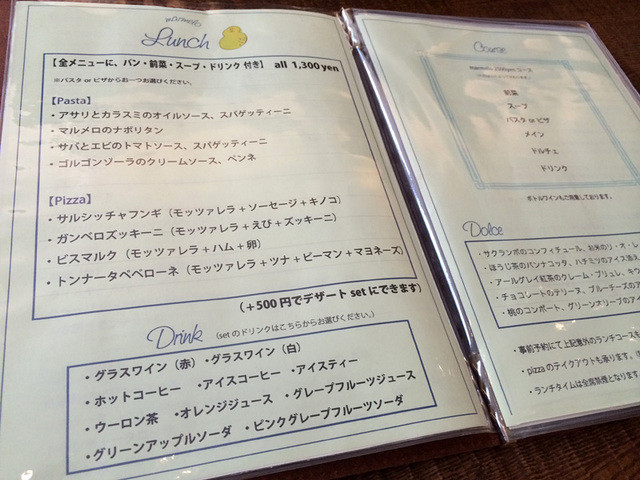 marmelo
Lunch
【全メニューに、パン・前菜・スープ・ドリンク 付き】 all 1,300yen
※パスタ or ピザからお一つお選びください。
【Pasta】
・アサリとカラスミのオイルソース、スパゲッティーニ
・マルメロのナポリタン
・サバとエビのトマトソース、スパゲッティーニ
・ゴルゴンゾーラのクリームソース、ペンネ
【Pizza】
・サルシッチャフンギ（モッツァレラ＋ソーセージ＋キノコ）
・ガンベロズッキーニ（モッツァレラ＋えび＋ズッキーニ）
・ビスマルク（モッツァレラ＋ハム＋卵）
・トンナータペペローネ（モッツァレラ＋ツナ＋ピーマン＋マヨネーズ）
（＋500円でデザート set にできます）
Drink （set のドリンクはこちらからお選びください。）
・グラスワイン（赤） ・グラスワイン（白）
・ホットコーヒー ・アイスコーヒー ・アイスティー
・ウーロン茶 ・オレンジジュース ・グレープフルーツジュース
・グリーンアップルソーダ ・ピンクグレープフルーツソーダ
Course
コース
前菜
スープ
パスタ or ピザ
メイン
ドルチェ
ドリンク
ボトルワインもご用意しております。
Dolce
・サクランボのコンフィチュール、お米のリ・オ・
・ほうじ茶のパンナコッタ、ハチミツのアイス添え
・アールグレイ紅茶のクレーム・ブリュレ、キ
・チョコレートのテリーヌ、ブルーチーズのア
・桃のコンポート、グリーンオリーブのア
・事前予約にて上記意外のランチコースも
・pizza のテイクアウトも承ります。
・ランチタイムは全席禁煙となります